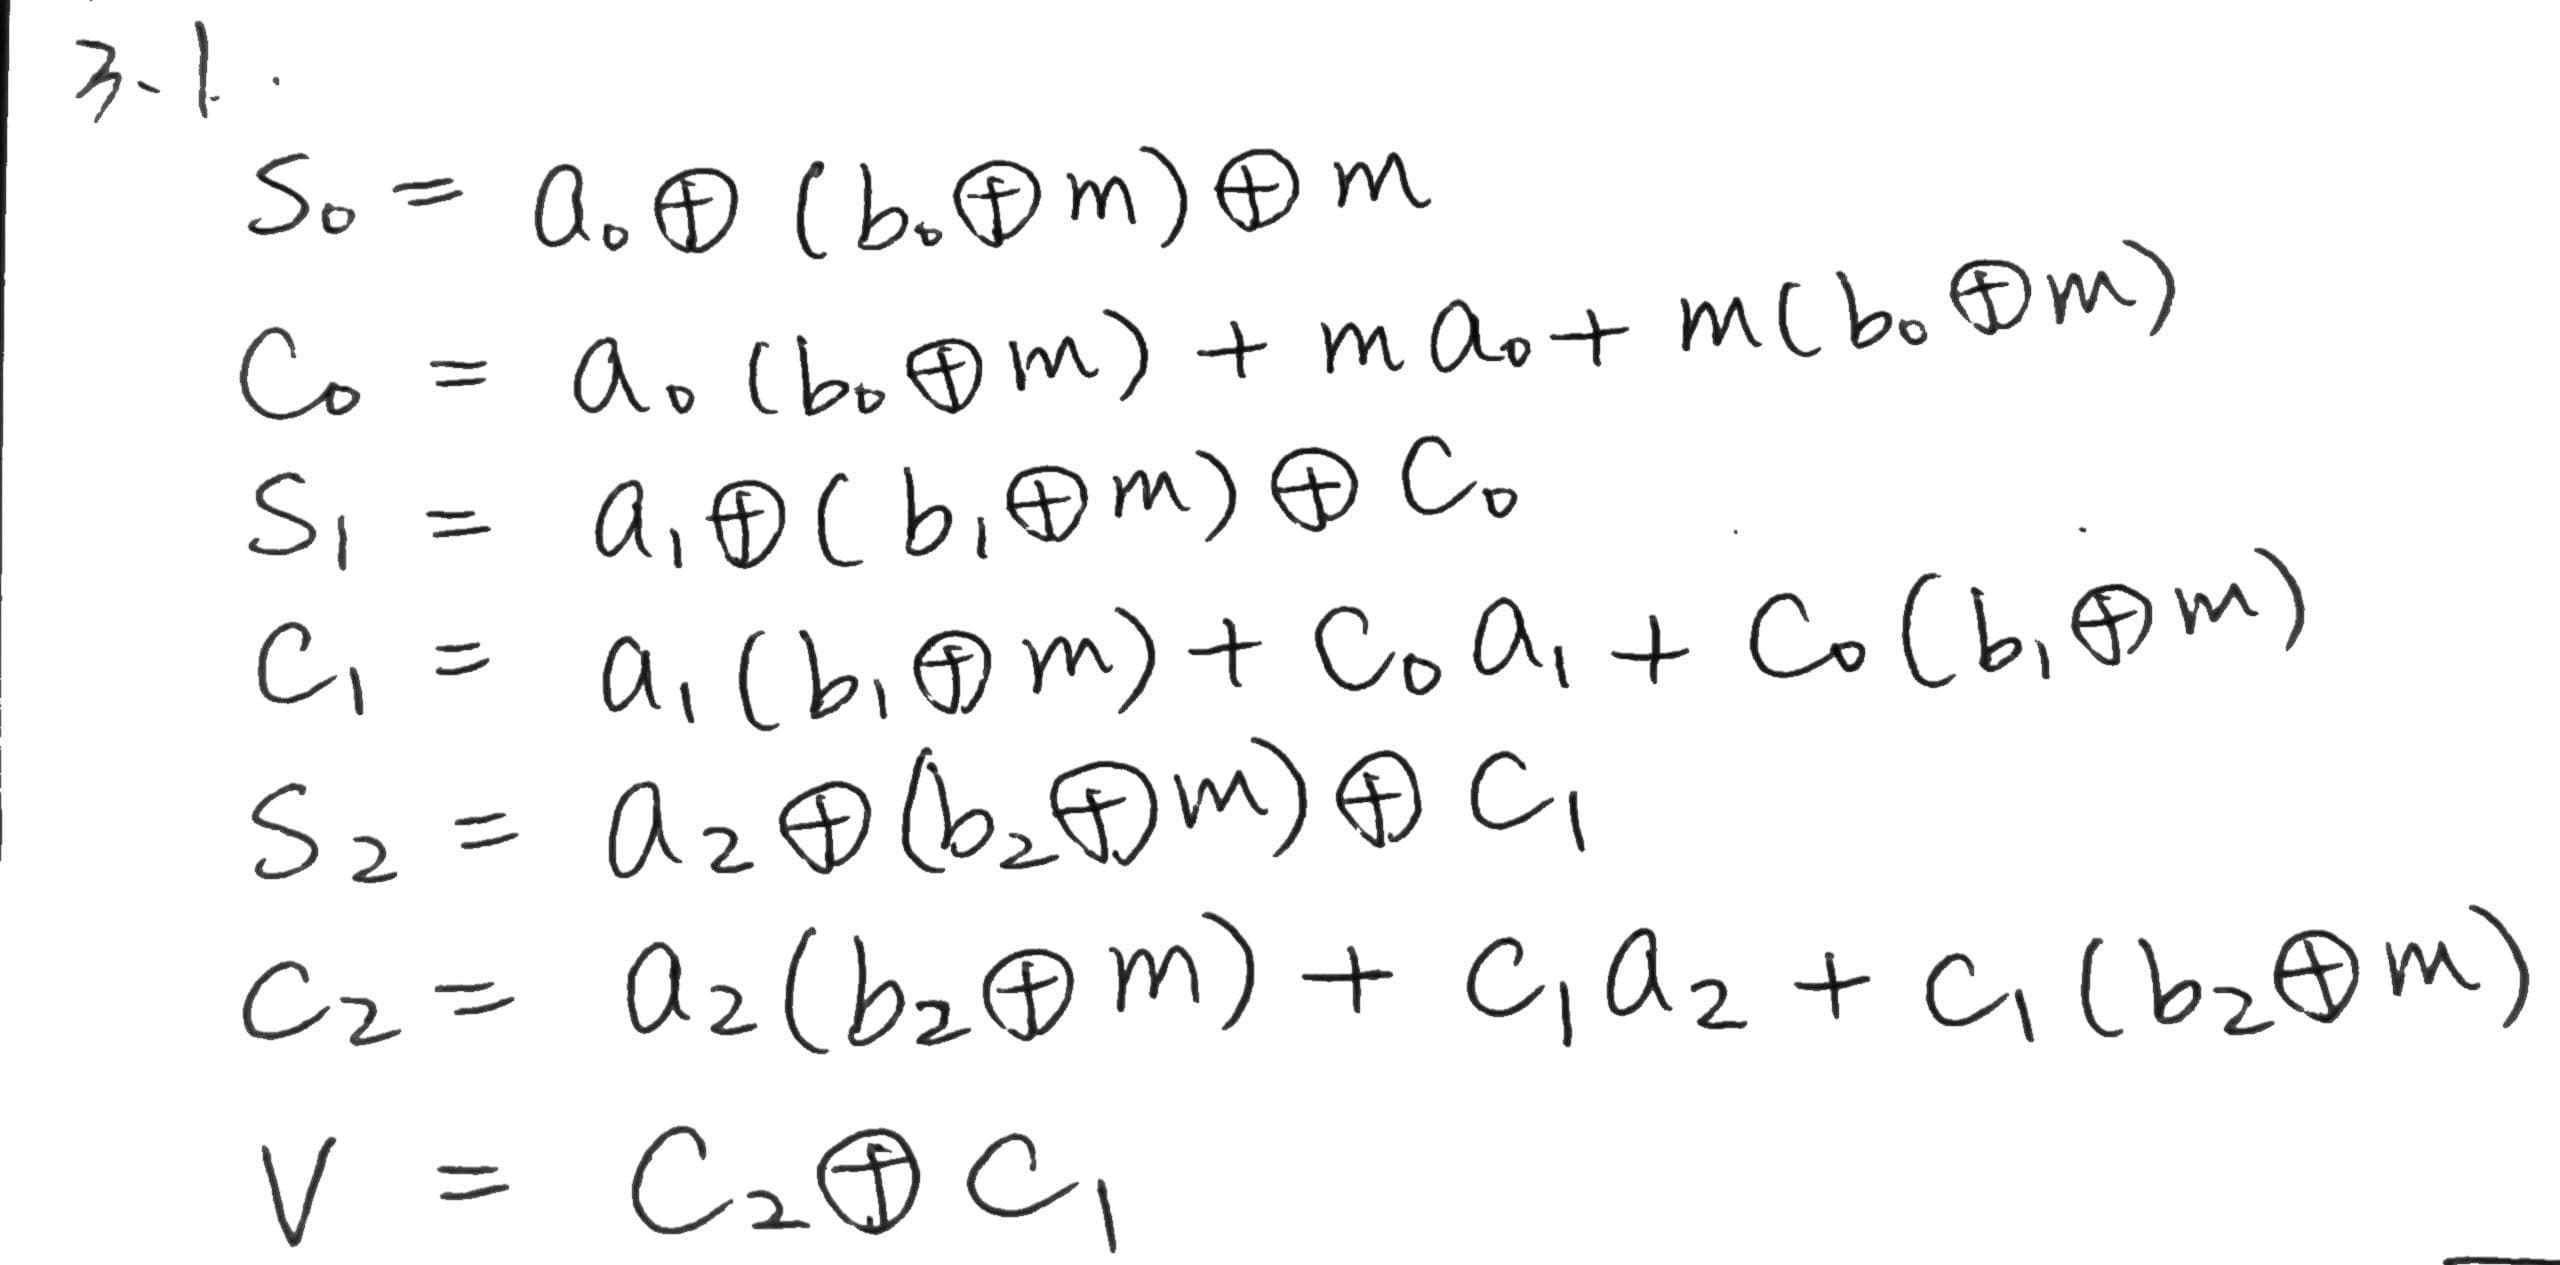 3-1.
S₀ = a₀ ⊕ (b₀ ⊕ m) ⊕ m
C₀ = a₀ (b₀ ⊕ m) + m a₀ + m (b₀ ⊕ m)
S₁ = a₁ ⊕ (b₁ ⊕ m) ⊕ C₀
C₁ = a₁ (b₁ ⊕ m) + C₀ a₁ + C₀ (b₁ ⊕ m)
S₂ = a₂ ⊕ (b₂ ⊕ m) ⊕ C₁
C₂ = a₂ (b₂ ⊕ m) + C₁ a₂ + C₁ (b₂ ⊕ m)
V = C₂ ⊕ C₁